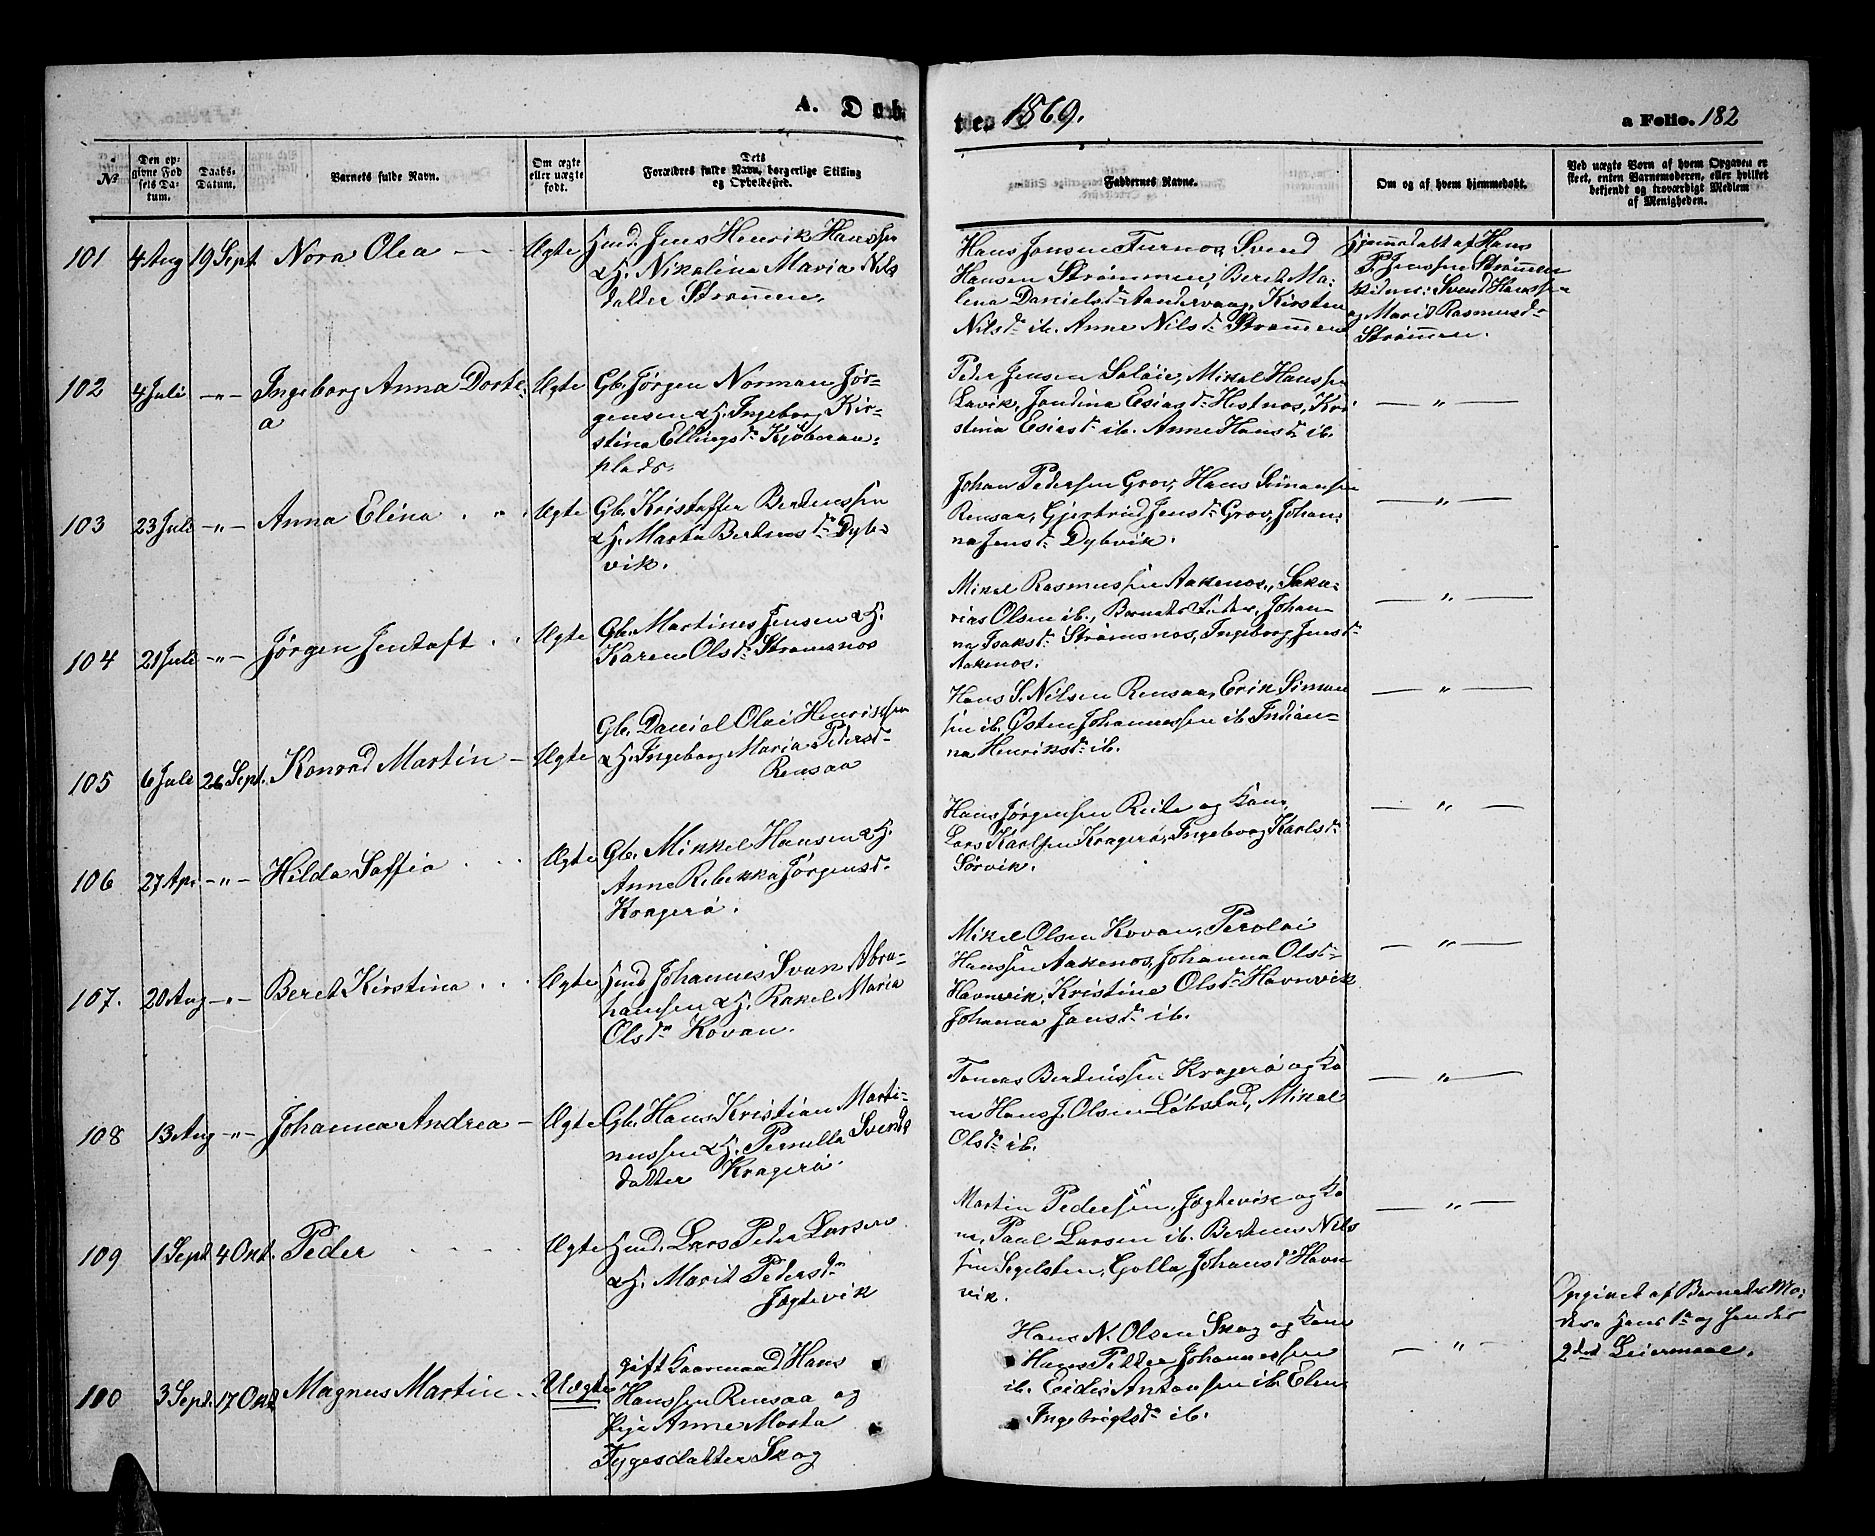 A. Dåb-
tes 1869.
a Folio. 182
№
Den op-
givne Fød
sels Da-
tum.
Daabs-
Datum.
Barnets fulde Navn.
Om ægte
eller uægte
født.
Dets
Forældres fulde Navn, borgerlige Stilling
og Opholdssted.
Faddernes Navne.
Om og af hvem hjemmedøbt.
Ved uægte Børn af hvem Opgaven er
skeet, enten Barnemoderen, eller hvilket
bekjendt og troværdigt Medlem
af Menigheden.
101 4 Aug 19 Sept. Nora Olea Ægte
Hmd. Jens Henrik Hanssen
& H. Nikolina Maria Nils
datter Strømmen.
Hans Jensen Furnes, Svend
Hansen Strømmen, Beret Ma-
lena Danielsdr. Sandervaag, Kirsten
Nilsdr. ib. Anne Nilsdr. Strømmen
Hjemmedøbt af Hans
P. Jenssen Strømmen
Vidne: Svend Hanssen
og Marit Rasmusdr.
Strømmen.
102 4 Juli -"- Ingeborg Anna Dorte-
a
Ægte
Gb. Jørgen Norman Jør-
gensen & H. Ingeborg Kir-
stina Ellingsdr. Kjøbmans-
plads.
Peder Jensen Saløie, Mikal Hanssen
Lavik, Jondina Esiasdr. Hestnes, Kri
stina Esiasdr. ib. Anne Hansdr. ib.
— " —
103 23 Juli -"- Anna Elina Ægte
Gb. Kristoffer Berteussen
& H. Marta Berteusdr. Dyb-
vik.
Johan Pedersen Grov, Hans Simonsen
Rensaa, Gjertrud Jensdr. Grov, Johan-
na Jensdr. Dybvik.
— " —
104 21 Juli -"- Jørgen Jentoft Ægte
Gb. Martines Jensen & H.
Karen Olsdr. Strømsnes
Mikal Rasmussen Aakenes, Saka-
rias Olsen ib., Barnets Fader, Johan-
na Isaksdr. Strømsnes, Ingeborg Jensdr.
Aakenes.
— " —
105 6 Juli 26 Sept. Konrad Martin Ægte
Gb. Daniel Olai Henrikssen
& H. Ingeborg Maria Pedersdr.
Rensaa
Hans S. Nilsen Rensaa, Erik Simon
sen ib. Østen Johannessen ib. Indian-
na Henriksdr. ib.
— " —
106 27 Apr -"- Hilda Soffia Ægte
Gb. Mikkel Hansen & H.
Anne Rebekka Jørgensdr.
Kragerø.
Hans Jørgensen Reite og Kone
Lars Karlsen Kragerø, Ingeborg Karlsdr.
Sørvik.
— " —
107. 20 Aug -"- Beret Kirstina Ægte
Hmd. Johannes Svan Abra-
hamsen & H. Rakel Maria
Olsdr. Kovan.
Mikel Olsen Kovan, Perolai
Hanssen Aakenes, Johanna Olsdr.
Havnvik, Kristine Olsdr. Havnvik
Johanna Jensdr. ib.
— " —
108 13 Aug -"- Johanna Andrea Ægte
Gb. Hans Kristian Marti-
nussen & H. Pernilla Svends
datter Kragerø.
Tomas Berteussen Kragerø og Ko
ne Hans J. Olsen Løbstad, Mikal
Olsdr. ib.
— " —
109 1 Sept 4 Okt. Peder Ægte
Hmd. Lars Peder Larsen
& H. Marit Pedersdr.
Jægtevik
Martin Pedersen Jægtevik og Ko
ne, Paul Larsen ib. Berteus Nils
sen Segelsten, Golla Johansdr. Havn
vik.
— " —
110 3 Sept. 17 Okt Magnus Martin Uægte
gift Gaarmand Hans
Hanssen Rensaa og
Pige Anne Marta
Tygesdatter Skog
Hans N. Olsen Skog og Kone
Hans Petter Johannessen
ib. Eidis Antonsen ib. Elen
Ingebrigtsdr. ib.
— " —
Opgivet af Barnets Mo-
der. Hans 1ste og hendes
2det Leiermaal.